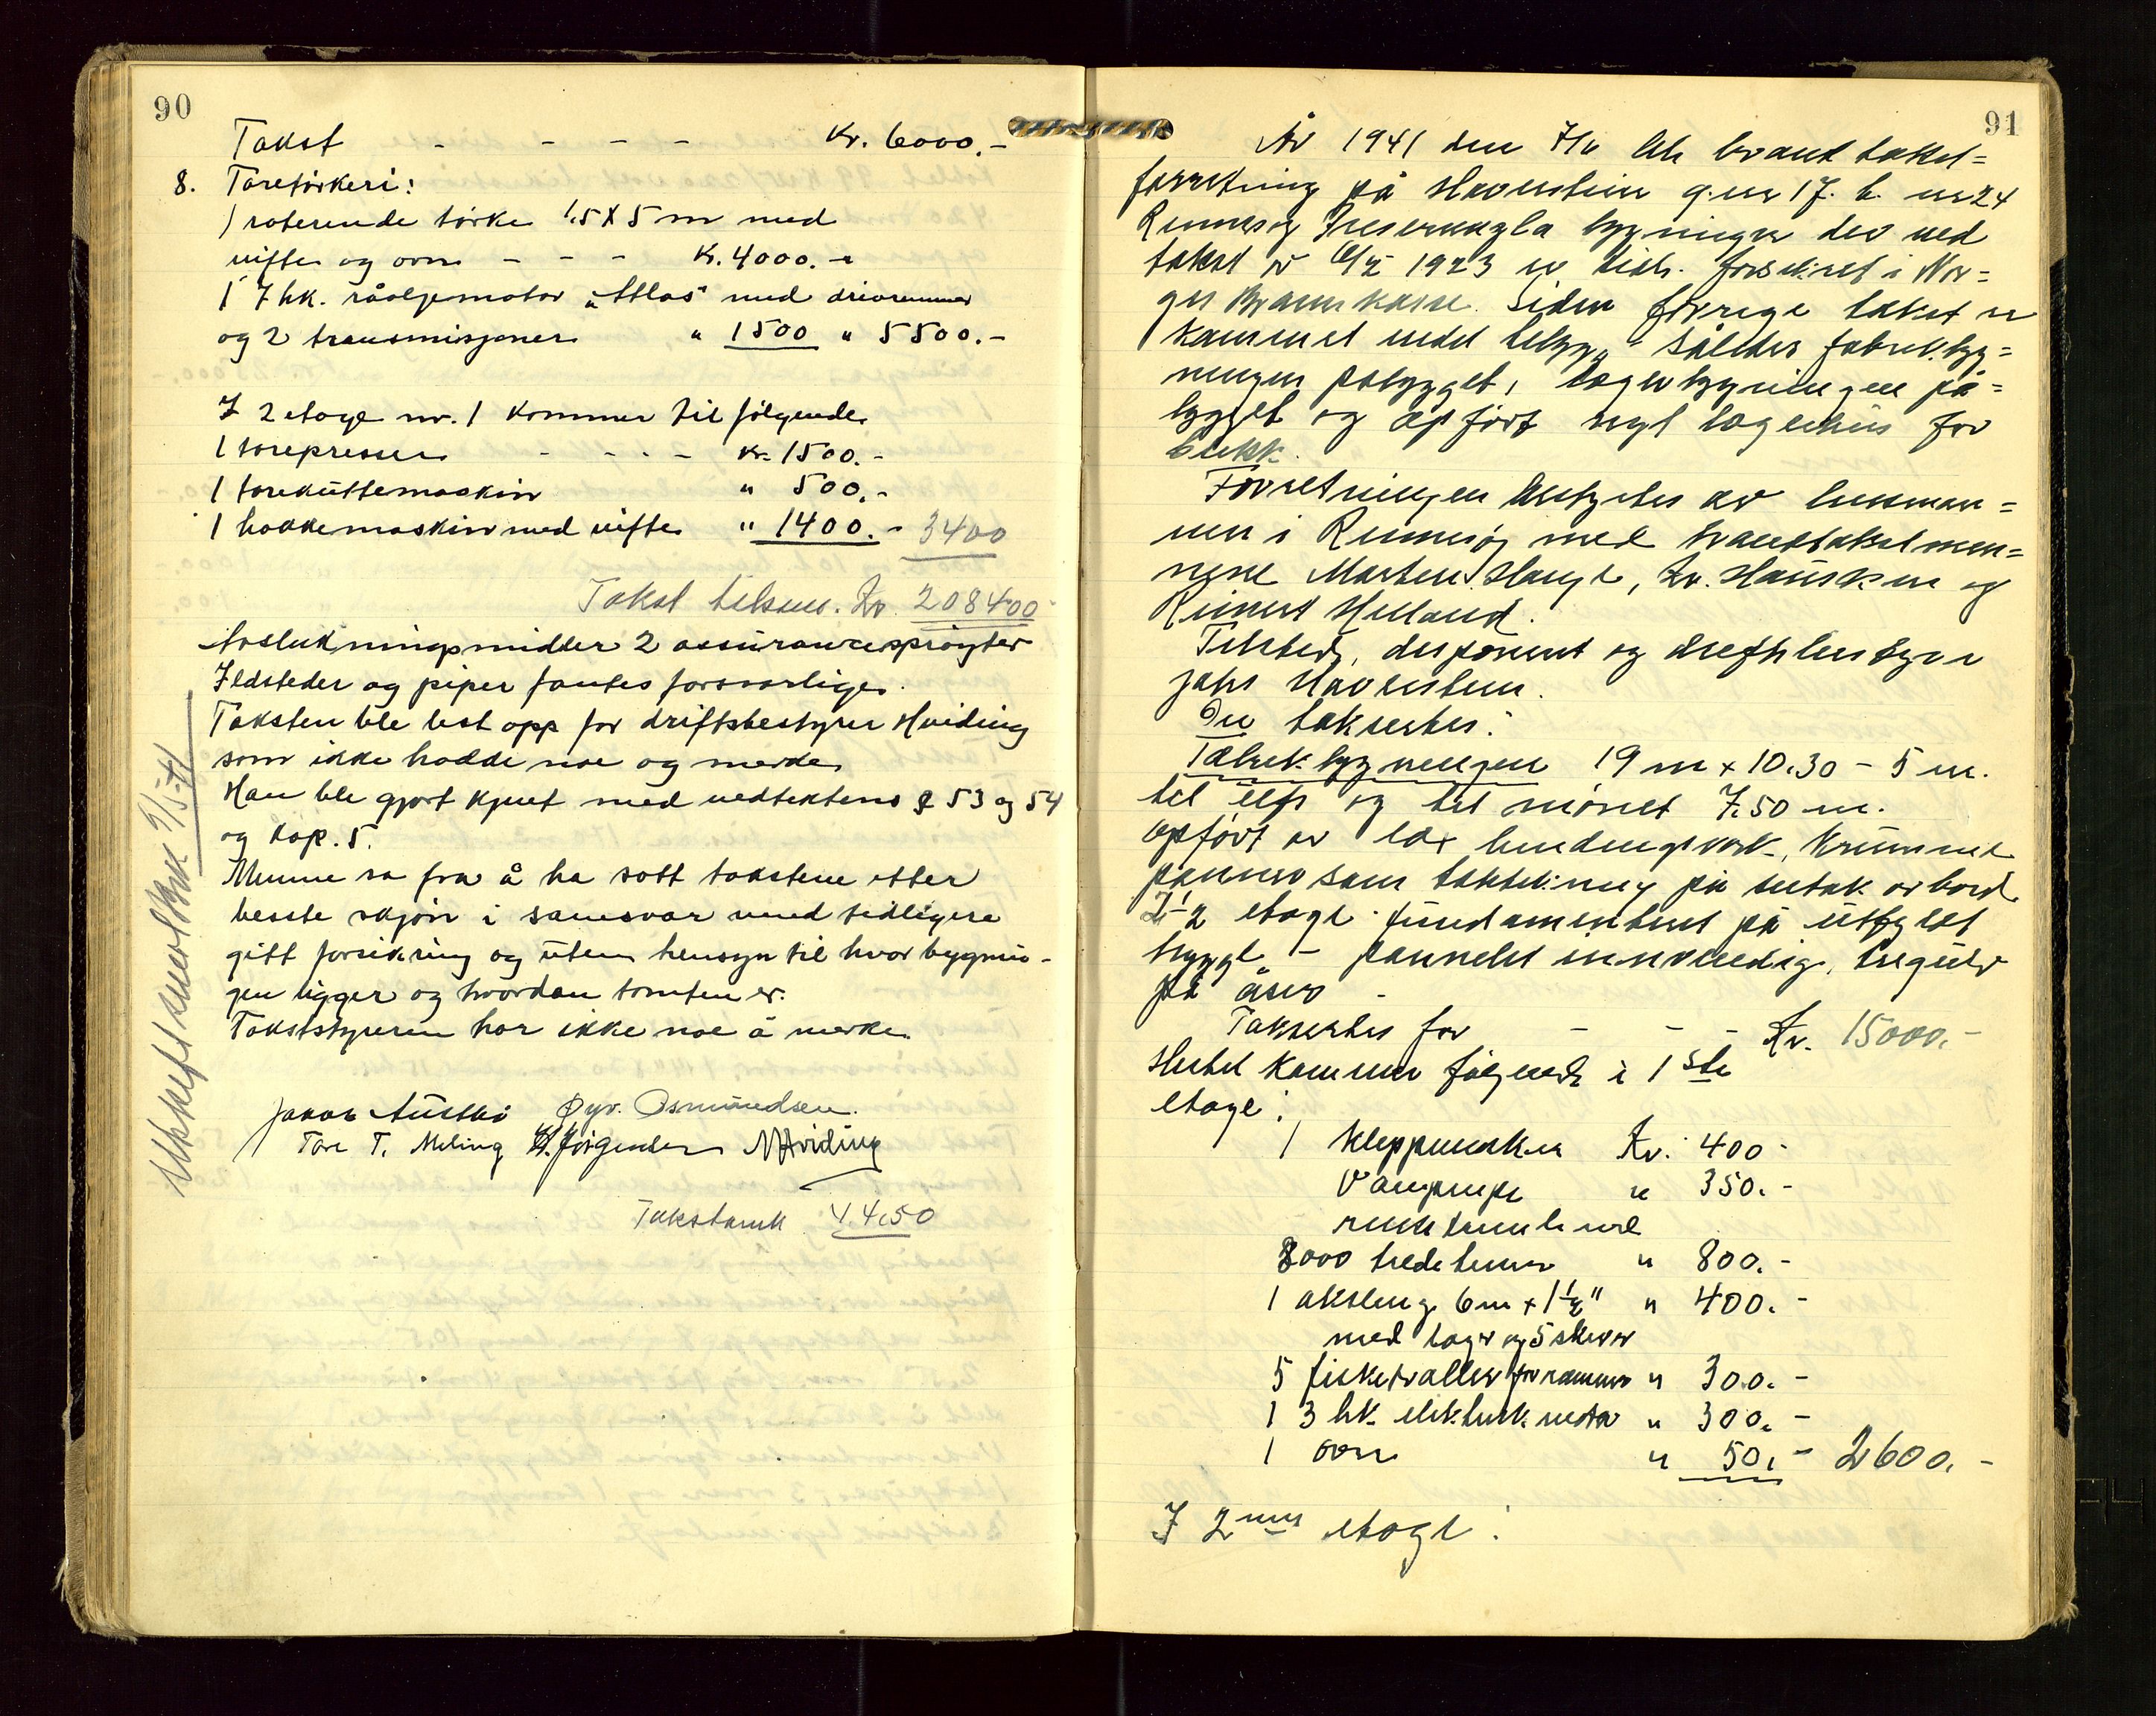 90
Takst - - - - Kr. 6000.-
8. Taretörkeri:
1 roterende törke 1.5 X 5 m med
vifte og ovn - - - Kr. 4000.-
1 7 hk. råoljemotor "Atlas" med drivremmer
og 2 transmisjoner " 1500 " 5500.-
I 2 etage nr. 1 kommer til følgende
1 tarepresse - - - - Kr. 1500.-
1 tarekuttemaskin " 500.-
1 hakkemaskin med vifte " 1400.- 3400
Takst tilsam. Kr. 208400
Avslukningsmidler 2 assuransesprøyter
Ildsteder og piper fantes forsvarlige.
Taksten ble lest opp for driftsbestyrer Hviding
som ikke hadde noe og merke,
Han ble gjort kjent med vedtektens § 53 og 54
og kap. 5.
Menne sa fra å ha satt takstene etter
beste skjøn i samsvar med tidligere
gitt forsikring og uten hensyn til hvor bygnin-
gen ligger og hvordan tomten er.
Takststyreren har ikke noe å merke.
Øyv. Osmundsen.
Tore T. Meling H. Jörgensen NHviding
44,50
91
År 1941 den 7/6 ble brant takst=
forretning på Havenstein g.nr 17. b. nr 24
Rennesøy bygninger der ved
takst av 1923 er forsikret i Nor=
ges Brannkasse. Siden forrige takst er
kommet nedd tilbygg således fabrikkbyg=
ningen påbygget, lagerbygningen på=
bygget og opført nyt lagerhus for
blikk.
Forretningen bestyrtes av lensman=
nen i Rennesøy med branttakstmen=
nene Morten Hauge, Kr. Hausken og
Reinert Helland.
Tilstede, disponent og driftsbestyrer
Den taksertes:
Fabrikkbygningen 19 m x 10,30 - 5 m.
til ufs og til mønet 7,50 m.
opført av lax bindingsverk, krumme
panner som taktekning på sutak av bord
I 2 etage fundamentert på utfylt
brygge - pannelet innvendig, tregulv
på åser -
Taksertes for - - - Kr. 15000.-
Hertil kommer følgende i 1ste
etage:
1 Kleppmaskin Kr. 400-
Vanpumpe " 350.-
8000 " 800.-
1 aksling 6m x 1 1/2" " 400.-
med lager og 5 skiver
5 fisketraller for rammer " 300.-
1 3 hk. elektrisk motor " 300.-
1 ovn " 50.- 2600.-
I 2nen etage: